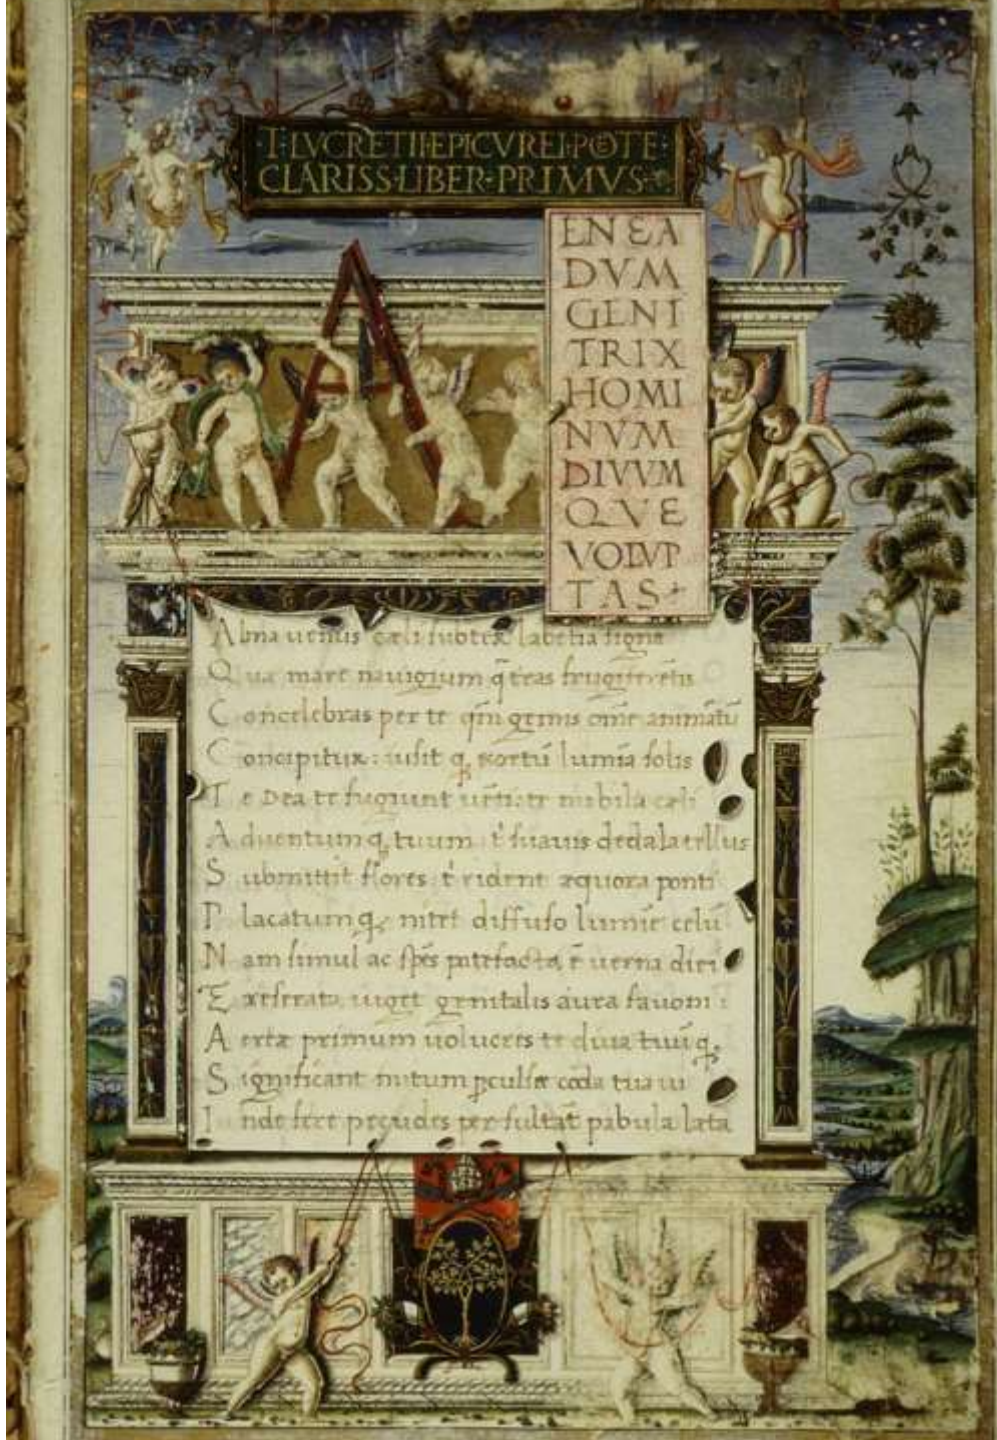 T·LVCRETII·EPICVREI·POETE·
CLARISS·LIBER·PRIMVS·
A
EN EA
DVM
GENI
TRIX
HOMI
NVM
DIVVM
QVE
VOLVP
TAS
Alma uenus cæli subter labentia signa
Quæ mare nauigium q̃ t̃ras frugifer̃etis
Concelebras per te qm̃ genus om̃e animãtũ
Concipitur: uisit q̨ exortũ lumĩa solis
Te Dea te fugiunt uẽti: te nubila cæli
Aduentumq̨ tuum: t̾ suauis dedala tellus
Submittit flores: t̾ rident æquora ponti
Placatumq̨ nitet diffuso lumĩe celũ
Nam simul ac sp̃es patefacta ẽ uerna diei
Et reserata uiget genitalis aura fauoni
Aeriæ primum uolucres te diua tuũq̨
Significant initum p̱culsæ corda tua ui
Inde feræ pecudes per sultãt pabula læta